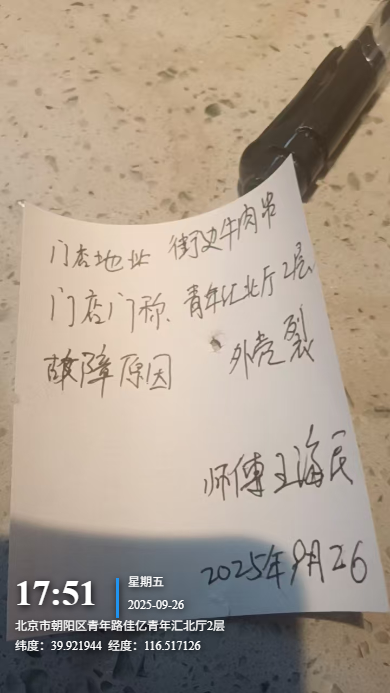 门店地址 街史牛肉串
门店门称、青年汇北厅2层
故障原因 外壳裂
师傅王海民
2025年9月26
17:51
星期五
2025-09-26
北京市朝阳区青年路佳亿青年汇北厅2层
纬度：39.921944 经度：116.517126